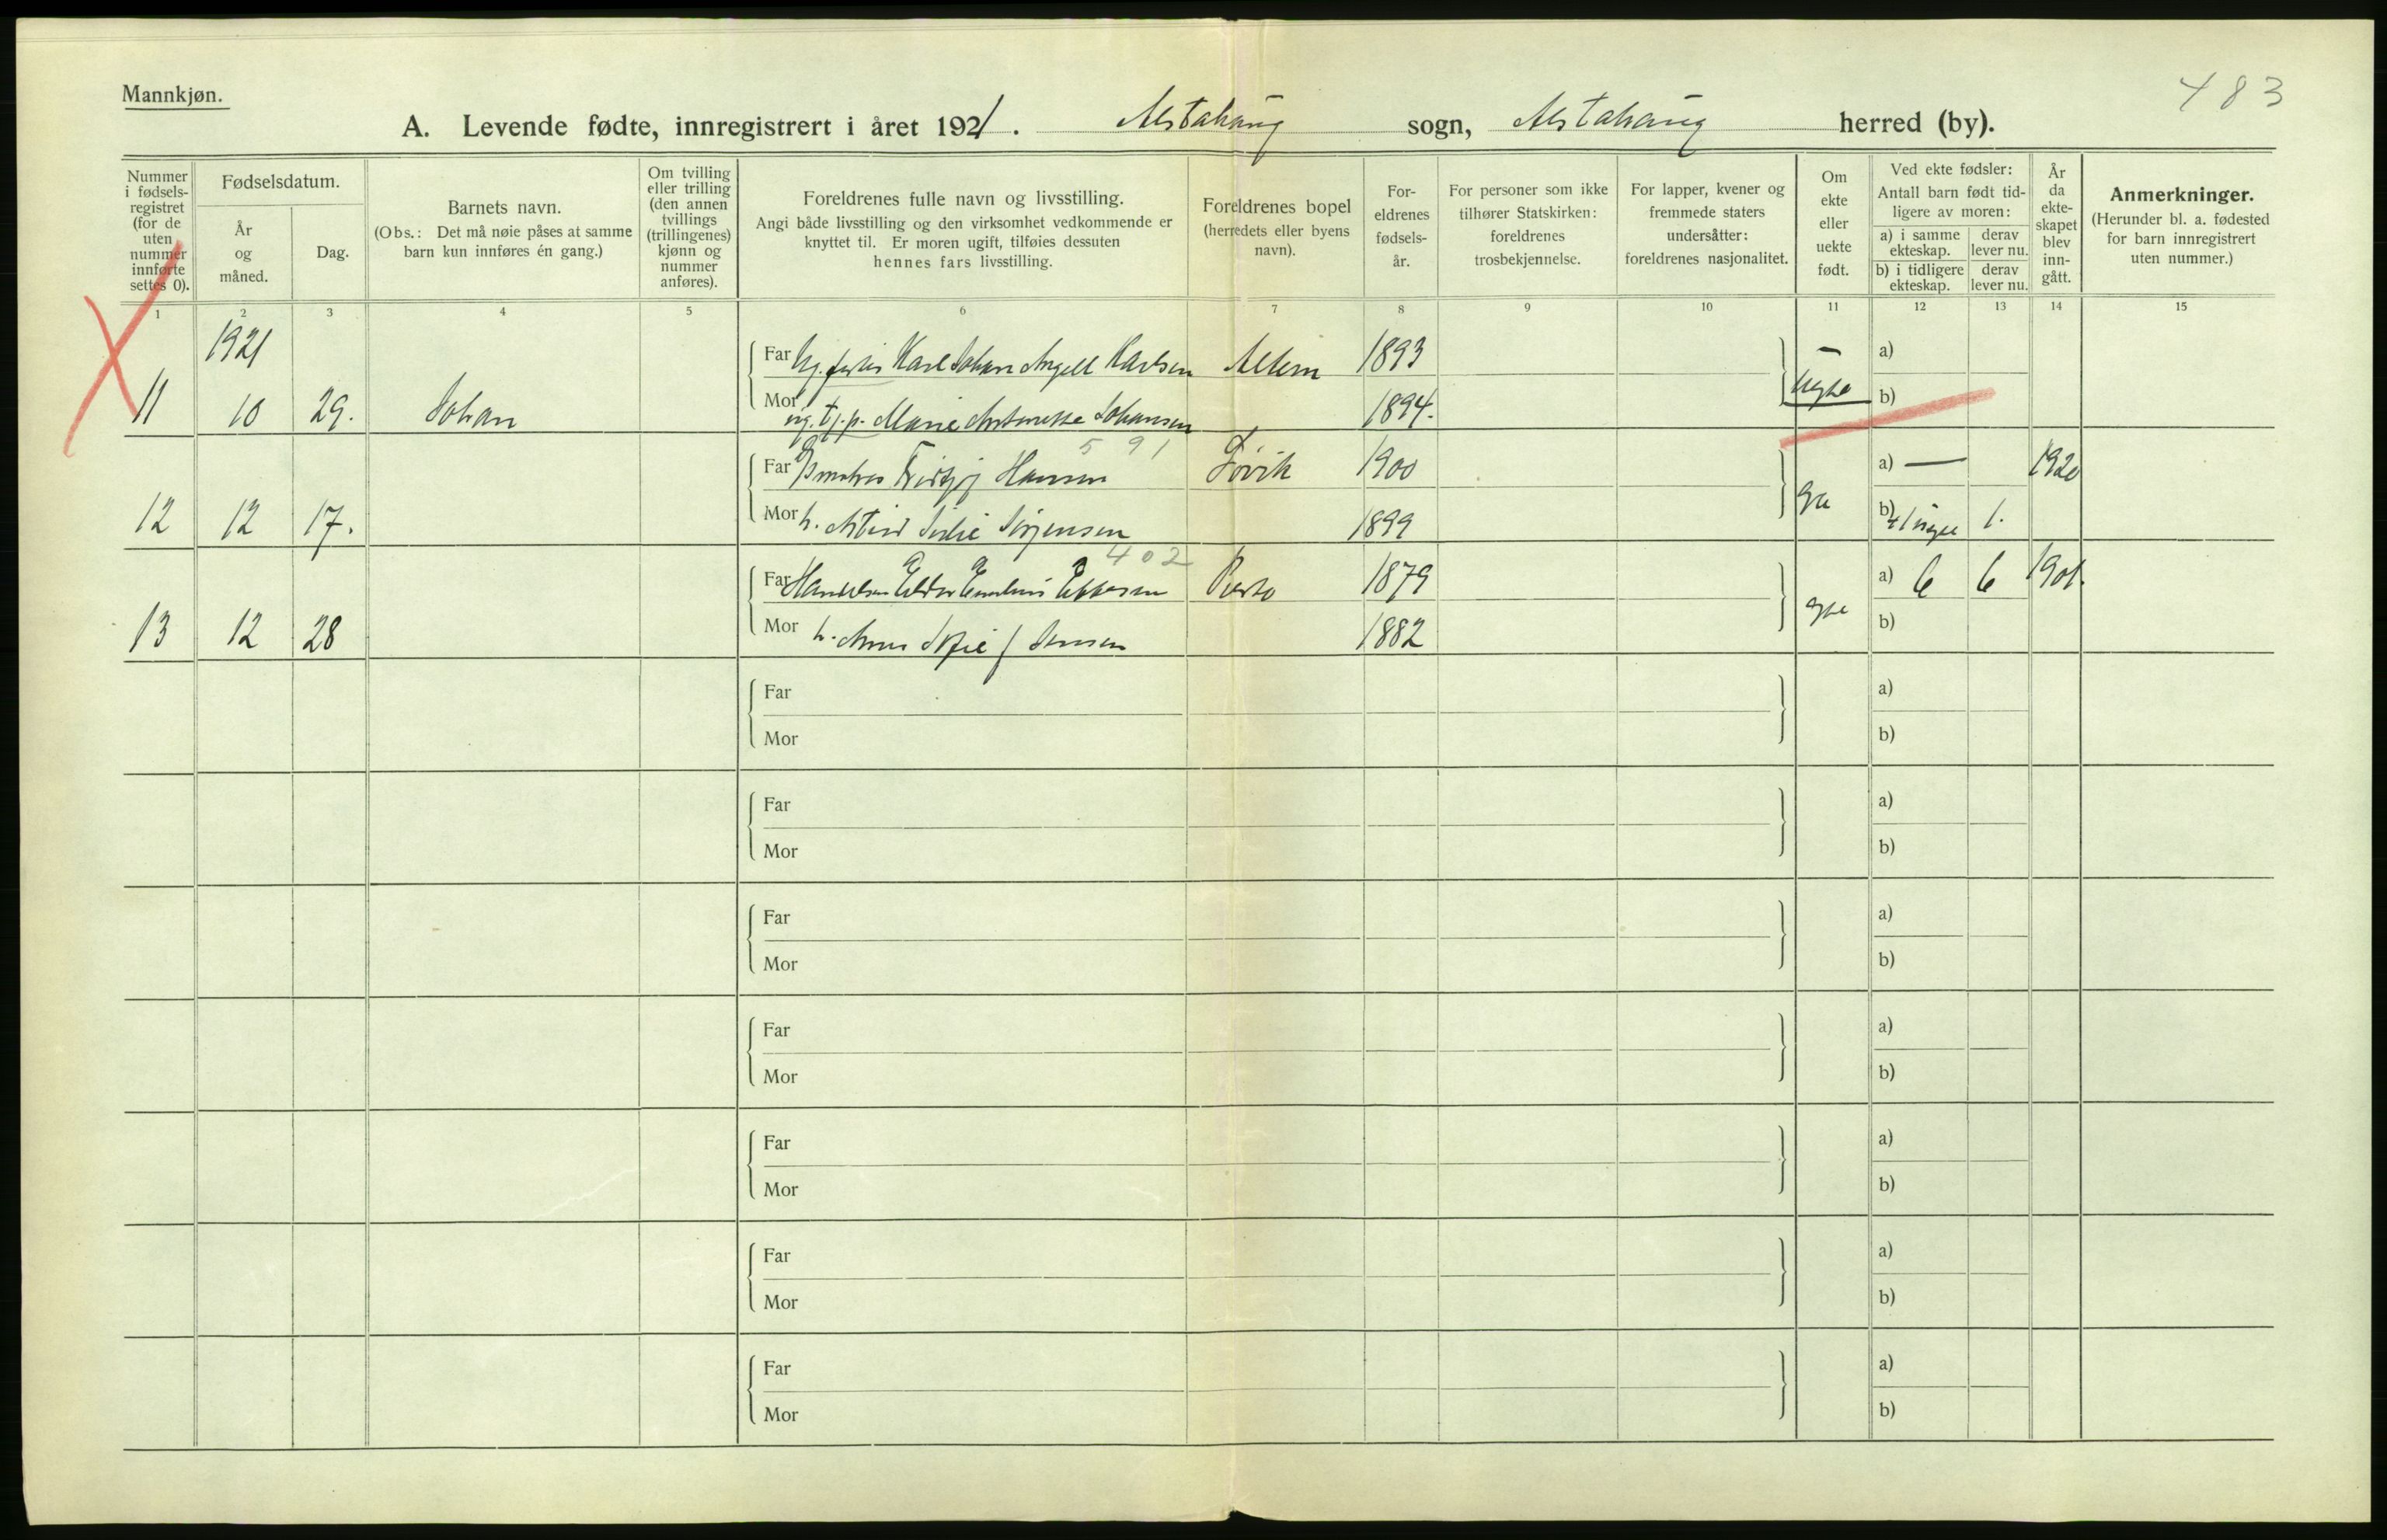 Mannkjøn.
483
A. Levende fødte, innregistrert i året 1921. Alstahaug sogn, Alstahaug herred (by).
Nummer i fødsels-registret (for de uten nummer innførte settes 0).
Fødselsdatum.
År og måned.
Dag.
Barnets navn.
(Obs.: Det må nøie påses at samme barn kun innføres én gang.)
Om tvilling eller trilling (den annen tvillings (trillingenes) kjønn og nummer anføres).
Foreldrenes fulle navn og livsstilling.
Angi både livsstilling og den virksomhet vedkommende er knyttet til. Er moren ugift, tilføies dessuten hennes fars livsstilling.
Foreldrenes bopel (herredets eller byens navn).
For-eldrenes fødsels-år.
For personer som ikke tilhører Statskirken: foreldrenes trosbekjennelse.
For lapper, kvener og fremmede staters undersåtter: foreldrenes nasjonalitet.
Om ekte eller uekte født.
Ved ekte fødsler:
Antall barn født tid-ligere av moren:
a) i samme ekteskap.
derav lever nu.
b) i tidligere ekteskap.
derav lever nu.
År da ekte-skapet blev inn-gått.
Anmerkninger.
(Herunder bl. a. fødested for barn innregistrert uten nummer.)
1 2 3 4 5 6 7 8 9 10 11 12 13 14 15
1921
Far Ug. fisker Karl Johan Angell Karlsen 1893 a)
11 10 29. Johan Mor ug. tj.p. Marie Antonette Johansen 1894. Uegte b)
591
Far Hansen 1900 a) — 1920
12 12 17. Mor h. Astrid Jørgensen 1899 b) 1.
402
Far 1879 a) 6 6 1901.
13 12 28 Mor h. Anna Sofie f Jensen 1882 b)
Far a)
Mor b)
Far a)
Mor b)
Far a)
Mor b)
Far a)
Mor b)
Far a)
Mor b)
Far a)
Mor b)
Far a)
Mor b)